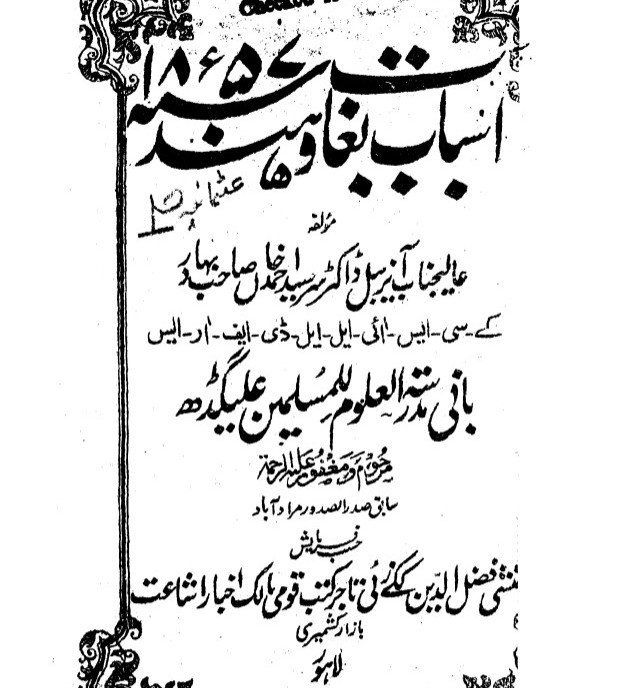 اسباب بغاوت ہند
۱۸۵۷ء
عثمانیہ
مؤلفہ
عالیجناب آنریبل ڈاکٹر سر سید احمد خاں صاحب بہادر
کے-سی-ایس-ائی-ایل-ایل-ڈی-ایف-ار-ایس
بانی مدرستہ العلوم للمسلمین علیگڈھ
مرحوم و مغفور علیہ الرحمۃ
سابق صدر الصدور مراد آباد
حسب فرمایش
منشی فضل الدین ککے زئی تاجر کتب قومی مالک اخبار اشاعت
بازار کشمیری
لاہور